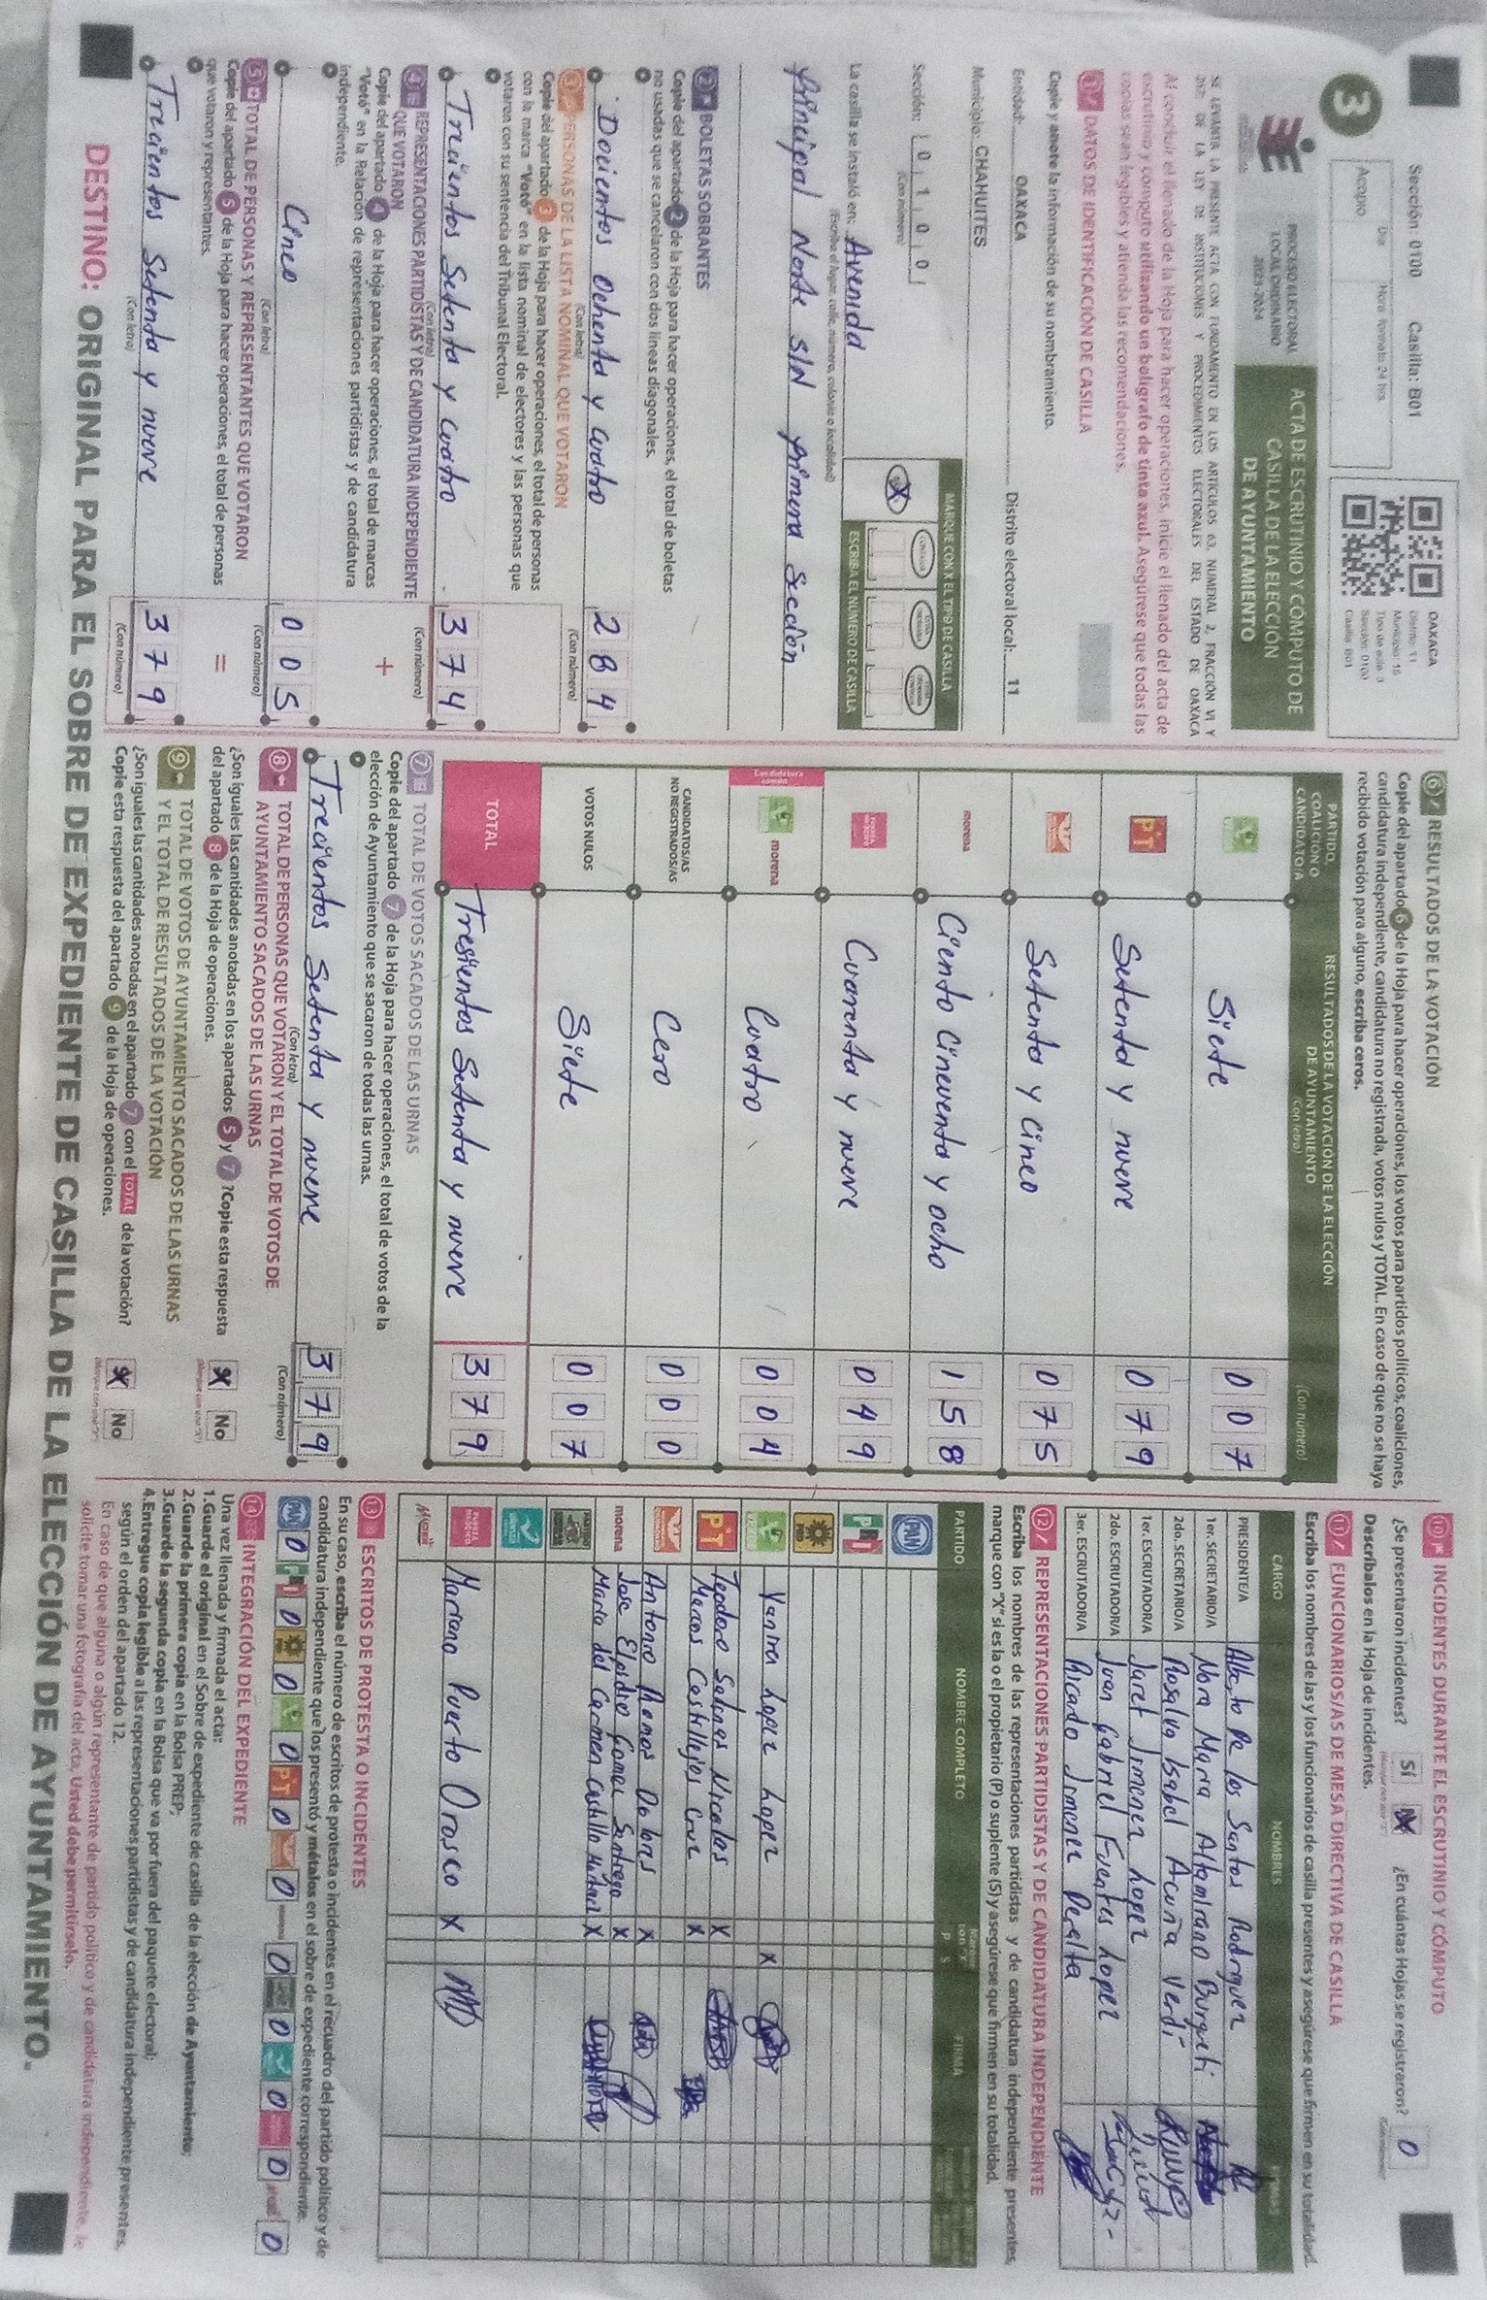 Sección: 0100 Casilla: B01
Día Hora formato 24 hrs
Acopio
OAXACA
Distrito: 11
Municipio: 15
Tipo de acta: 3
Sección: 0100
Casilla: B01
3
PROCESO ELECTORAL
LOCAL ORDINARIO
2023-2024
ACTA DE ESCRUTINIO Y CÓMPUTO DE
CASILLA DE LA ELECCIÓN
DE AYUNTAMIENTO
SE LEVANTA LA PRESENTE ACTA CON FUNDAMENTO EN LOS ARTÍCULOS 63, NUMERAL 2, FRACCIÓN VI Y
DE LA LEY DE INSTITUCIONES Y PROCEDIMIENTOS ELECTORALES DEL ESTADO DE OAXACA
Al concluir el llenado de la Hoja para hacer operaciones, inicie el llenado del acta de
escrutinio y cómputo utilizando un bolígrafo de tinta azul. Asegúrese que todas las
copias sean legibles y atienda las recomendaciones.
1 DATOS DE IDENTIFICACIÓN DE CASILLA
Copie y anote la información de su nombramiento.
Entidad: OAXACA Distrito electoral local: 11
Municipio: CHAHUITES
Sección: 0100
(Con número)
MARQUE CON X EL TIPO DE CASILLA
X
ESCRIBA EL NÚMERO DE CASILLA
La casilla se instaló en: Avenida
(Escriba el lugar, calle, número, colonia o localidad)
principal Norte S/N primera Sección
2 BOLETAS SOBRANTES
Copie del apartado 2 de la Hoja para hacer operaciones, el total de boletas
no usadas que se cancelaron con dos líneas diagonales.
Docientos Ochenta y cuatro 284
(Con letra) (Con número)
3 PERSONAS DE LA LISTA NOMINAL QUE VOTARON
Copie del apartado 3 de la Hoja para hacer operaciones, el total de personas
con la marca "Votó" en la lista nominal de electores y las personas que
votaron con su sentencia del Tribunal Electoral.
Trecientos Setenta y cuatro 374
(Con letra) (Con número)
4 REPRESENTACIONES PARTIDISTAS Y DE CANDIDATURA INDEPENDIENTE
QUE VOTARON
Copie del apartado 4 de la Hoja para hacer operaciones, el total de marcas
"Votó" en la Relación de representaciones partidistas y de candidatura
independiente.
+
Cinco 005
(Con letra) (Con número)
5 TOTAL DE PERSONAS Y REPRESENTANTES QUE VOTARON
Copie del apartado 5 de la Hoja para hacer operaciones, el total de personas
que votaron y representantes.
=
Trecientos Setenta y nueve 379
(Con letra) (Con número)
6 RESULTADOS DE LA VOTACIÓN
Copie del apartado 6 de la Hoja para hacer operaciones, los votos para partidos políticos, coaliciones,
candidatura independiente, candidatura no registrada, votos nulos y TOTAL. En caso de que no se haya
recibido votación para alguno, escriba ceros.
PARTIDO, COALICIÓN O CANDIDATO/A
RESULTADOS DE LA VOTACIÓN DE LA ELECCIÓN
DE AYUNTAMIENTO
(Con letra) (Con número)
Siete 007
PT Setenta y nueve 079
Setenta y cinco 075
morena Ciento Cincuenta y ocho 158
Cuarenta y nueve 049
Candidatura común
morena Cuatro 004
CANDIDATOS/AS
NO REGISTRADOS/AS Cero 000
VOTOS NULOS Siete 007
TOTAL Tresientos Setenta y nueve 379
7 TOTAL DE VOTOS SACADOS DE LAS URNAS
Copie del apartado 7 de la Hoja para hacer operaciones, el total de votos de la
elección de Ayuntamiento que se sacaron de todas las urnas.
Trecientos Setenta y nueve 379
(Con letra) (Con número)
8 TOTAL DE PERSONAS QUE VOTARON Y EL TOTAL DE VOTOS DE
AYUNTAMIENTO SACADOS DE LAS URNAS
¿Son iguales las cantidades anotadas en los apartados 5 y 7 ? Copie esta respuesta
del apartado 8 de la Hoja de operaciones.
X No
9 TOTAL DE VOTOS DE AYUNTAMIENTO SACADOS DE LAS URNAS
Y EL TOTAL DE RESULTADOS DE LA VOTACIÓN
¿Son iguales las cantidades anotadas en el apartado 7 con el TOTAL de la votación?
Copie esta respuesta del apartado 9 de la Hoja de operaciones.
X No
10 INCIDENTES DURANTE EL ESCRUTINIO Y CÓMPUTO
¿Se presentaron incidentes? Sí X ¿En cuántas Hojas se registraron? 0
Descríbalos en la Hoja de incidentes.
11 FUNCIONARIOS/AS DE MESA DIRECTIVA DE CASILLA
Escriba los nombres de las y los funcionarios de casilla presentes y asegúrese que firmen en su totalidad.
CARGO NOMBRES
PRESIDENTE/A Alberto De los Santos Rodriguez
1er. SECRETARIO/A Nora Maria Altamirano Burgueti
2do. SECRETARIO/A Rosalva Isabel Acuña Verdi
1er. ESCRUTADOR/A Jaret Jimenez Lopez
2do. ESCRUTADOR/A Juan Gabriel Fuentes Lopez
3er. ESCRUTADOR/A Ricardo Jimenez Peralta
12 REPRESENTACIONES PARTIDISTAS Y DE CANDIDATURA INDEPENDIENTE
Escriba los nombres de las representaciones partidistas y de candidatura independiente presentes,
marque con "X" si es la o el propietario (P) o suplente (S) y asegúrese que firmen en su totalidad.
PARTIDO NOMBRE COMPLETO P S FIRMA
PAN
PRI
PRD
Yanira Lopez Lopez X
PT Teodoro Salinas Nicolas X
Marcos Castillejos Cruz X
Antonio Ramos Dolores X
morena Jose Elpidio Gomez Santiago X
Maria del Carmen Castillo X
Mariano Puerto Orosco X
13 ESCRITOS DE PROTESTA O INCIDENTES
En su caso, escriba el número de escritos de protesta o incidentes en el recuadro del partido político y de
candidatura independiente que los presentó y métalos en el sobre de expediente correspondiente.
PAN 0 PRI 0 PRD 0 0 PT 0 0 0 0 0 0 0
14 INTEGRACIÓN DEL EXPEDIENTE
Una vez llenada y firmada el acta:
1.Guarde el original en el Sobre de expediente de casilla de la elección de Ayuntamiento;
2.Guarde la primera copia en la Bolsa PREP;
3.Guarde la segunda copia en la Bolsa que va por fuera del paquete electoral;
4.Entregue copia legible a las representaciones partidistas y de candidatura independiente presentes,
según el orden del apartado 12.
En caso de que alguna o algún representante de partido político y de candidatura independiente, le
solicite tomar una fotografía del acta, Usted debe permitírselo.
DESTINO: ORIGINAL PARA EL SOBRE DE EXPEDIENTE DE CASILLA DE LA ELECCIÓN DE AYUNTAMIENTO.